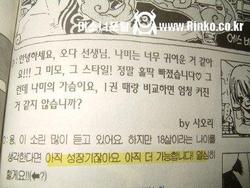 www.Rinko.co.kr
안녕하세요, 오다 선생님, 나미는 너무 귀여운 거 같아
요!! 그 미모, 그 스타일! 정말 홀딱 빠졌습니다♡ 그
런데 나미의 가슴이요, 1권 때랑 비교하면 엄청 커진
거 같지 않습니까?
by 시오리
이 소린 많이 듣고 있어요. 하지만 18살이라는 나이를
생각한다면 아직 성장기잖아요. 아직 더 가능합니다! 열심히
할게요!!(⬅?)